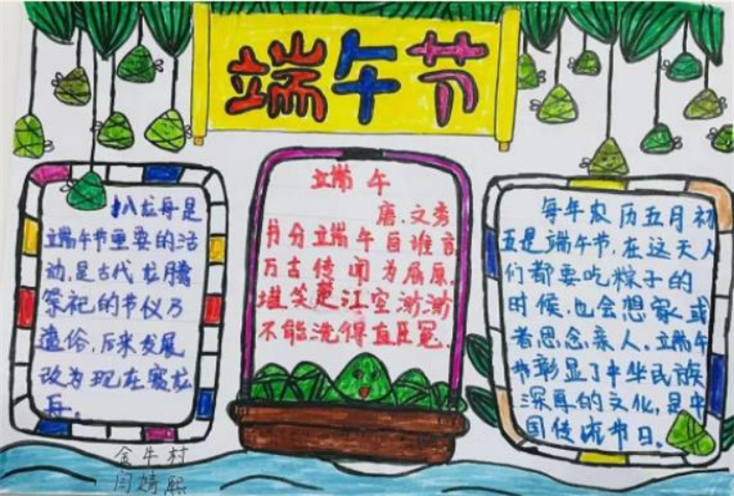 端午节
扒龙舟是
端午节重要的活
动,是古代龙腾
祭祀的节仪乃
遗俗,后来发展
改为现在赛龙
舟。
端午
唐.文秀
节分端午自谁言
万古传闻为屈原.
堪笑楚江空渺渺
不能洗得直臣冤.
每年农历五月初
五是端午节,在这天人
们都要吃粽子的
时候,也会想家或
者思念亲人。端午
节彰显了中华民族
深厚的文化,是中
国传统节日。
金牛村
闫婧熙